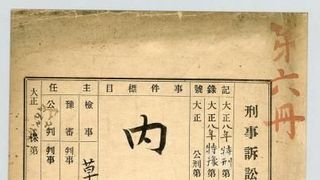 第六冊
刑事訴訟
記錄號
大正八年特刑第
大正八年特豫第
大正　年公刑第
事件標目
內
主任
檢事
豫審判事
公判判事
大正